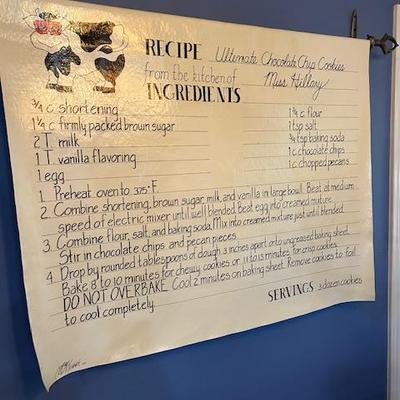 RECIPE Ultimate Chocolate Chip Cookies
from the kitchen of Miss Hillary
INGREDIENTS
3/4 c shortening
1 1/4 c firmly packed brown sugar
2 T milk
1 T vanilla flavoring
1 egg
1 3/4 c flour
1 tsp salt
3/4 tsp baking soda
1 c chocolate chips
1 c chopped pecans
1. Preheat oven to 375°F
2. Combine shortening, brown sugar, milk, and vanilla in large bowl. Beat at medium
speed of electric mixer until well blended. Beat egg into creamed mixture.
3. Combine flour, salt, and baking soda. Mix into creamed mixture just until blended.
Stir in chocolate chips and pecan pieces.
4. Drop by rounded tablespoons of dough 3 inches apart onto ungreased baking sheet.
Bake 8 to 10 minutes for chewy cookies or 11 to 13 minutes for crisp cookies.
DO NOT OVERBAKE. Cool 2 minutes on baking sheet. Remove cookies to foil
to cool completely.
SERVINGS 3 dozen cookies